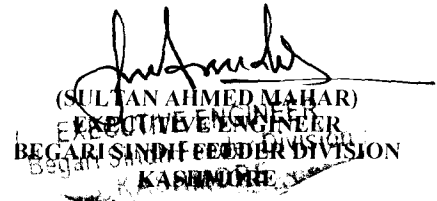 (SULTAN AHMED MAHAR)
EXECUTIVE ENGINEER
BEGARI SINDH FEEDER DIVISION
KASHMORE
EXECUTIVE ENGINEER
Begari Sindh Feeder Division